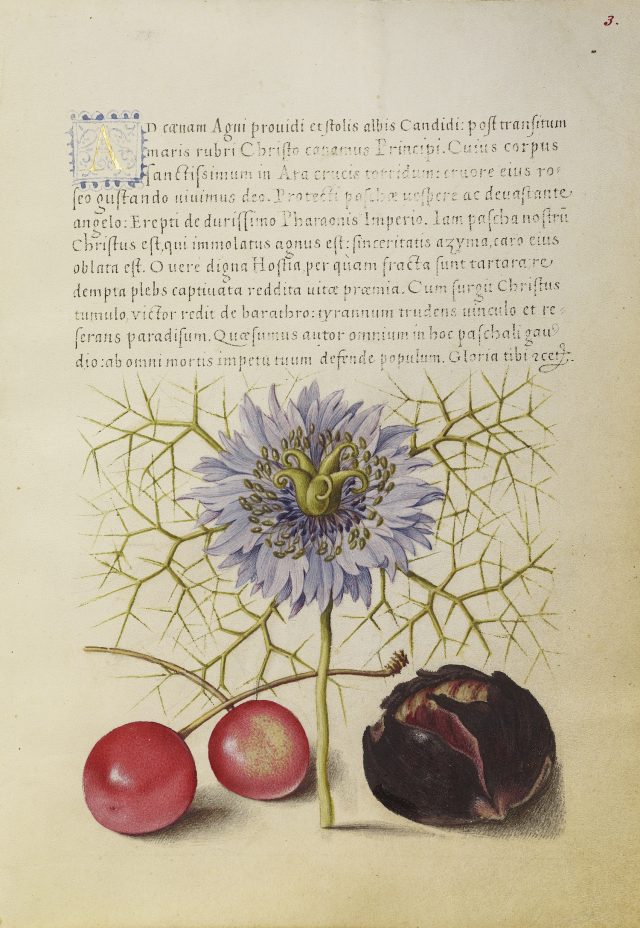 3.
AD cœnam Agni prouidi et stolis albis Candidi: post transitum
maris rubri Christo canamus Principi. Cuius corpus
sanctissimum in Ara crucis torridum: cruore eius ro-
seo gustando uiuimus deo. Protecti paschæ uespere ac deuastante
angelo: Erepti de durissimo Pharaonis Imperio. Iam pascha nostrũ
Christus est, qui immolatus agnus est: sinceritatis azyma, caro eius
oblata est. O uere digna Hostia, per quàm fracta sunt tartara, re
dempta plebs captiuata reddita uitæ præmia. Cum surgit Christus
tumulo, uictor redit de barathro: tyrannum trudens uinculo et re-
serans paradisum. Quæsumus autor omnium in hoc paschali gau
dio: ab omni mortis impetu tuum defende populum. Gloria tibi